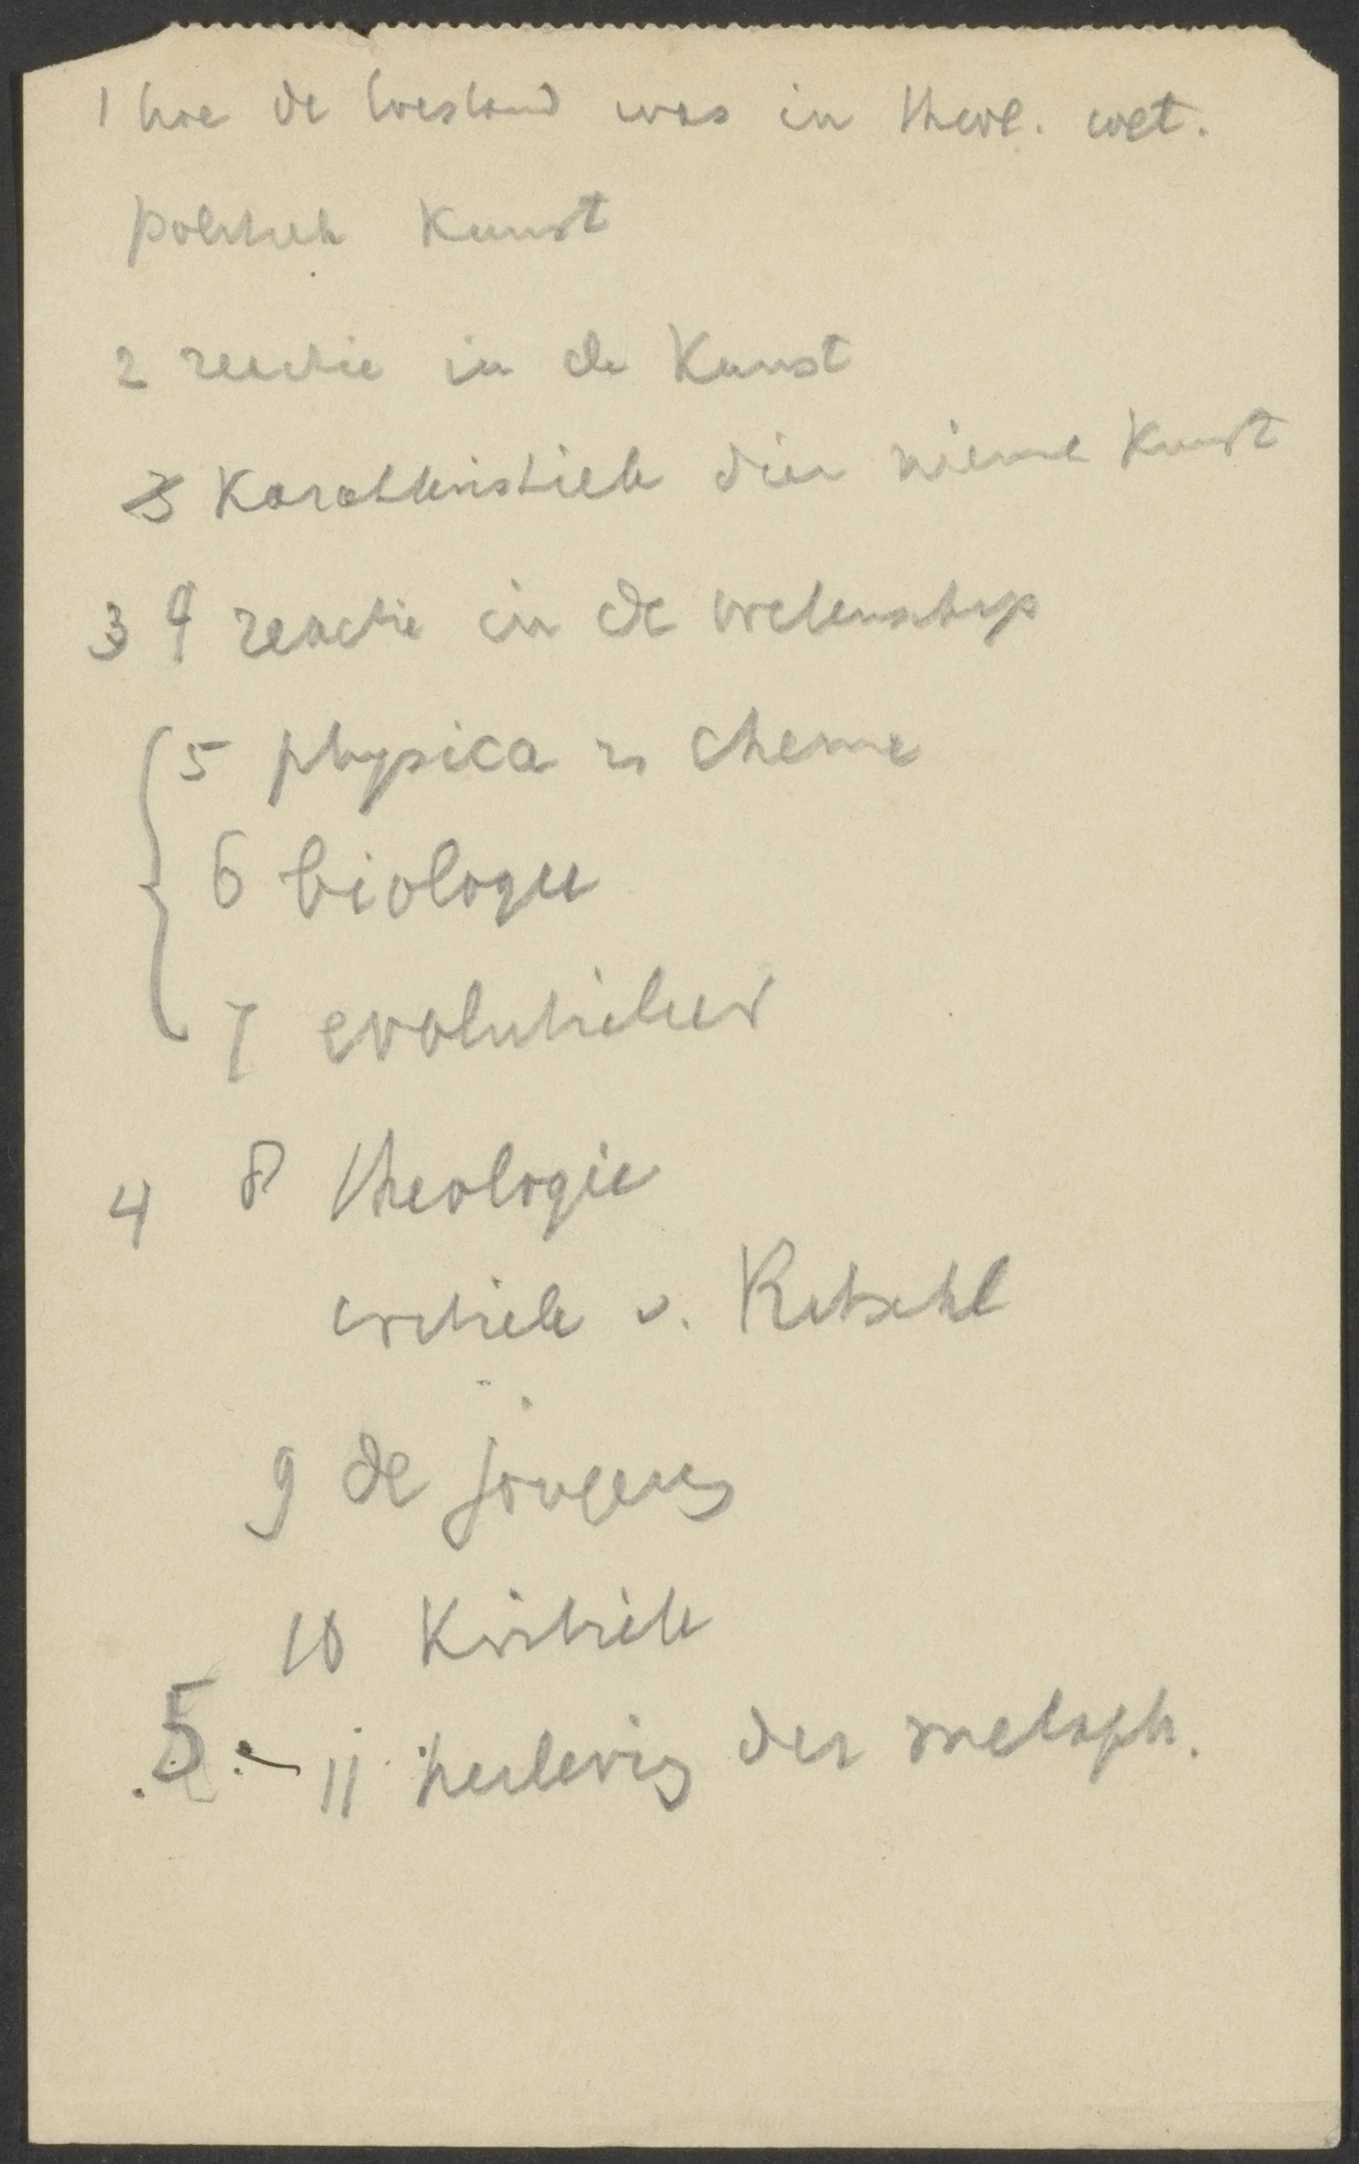 1 hoe de toestand was in theol. wet.
politiek Kunst
2 reactie in de Kunst
3 Karakteristiek dier nieuwe Kunst
3 4 reactie in de wetenschap
5 physica en chemie
6 biologie
7 evolutieleer
4 8 theologie
critiek v. Ritschl
9 de jongeren
10 Kritiek
5. - 11 herleving der metaph.